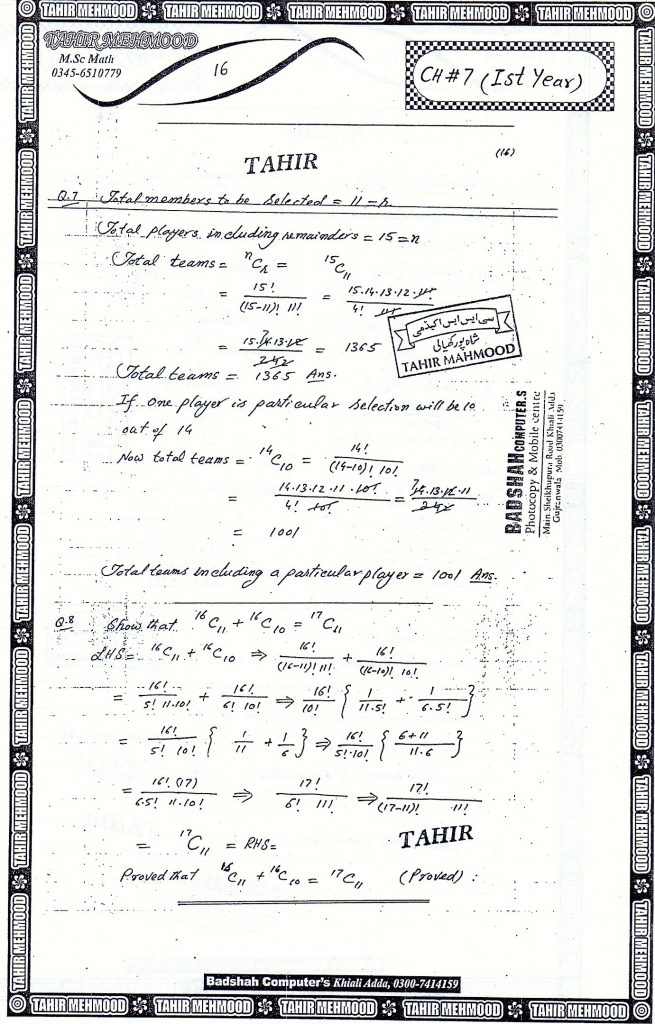 TAHIR MEHMOOD TAHIR MEHMOOD TAHIR MEHMOOD TAHIR MEHMOOD TAHIR MEHMOOD
TAHIR MEHMOOD
M.Sc Math
0345-6510779
16
CH#7 (Ist Year)
(16)
TAHIR
Q.7 Total members to be selected = 11 = r
Total players including remainders = 15 = n
Total teams = ⁿCᵣ = ¹⁵C₁₁
= 15! / (15-11)! 11! = 15.14.13.12.11! / 4! 11!
= 15.14.13.12 / 24 = 1365
سی ایس ایس اکیڈمی
شاہ پور کھیالی
TAHIR MAHMOOD
Total teams = 1365 Ans.
If one player is particular selection will be 10
out of 14
Now total teams = ¹⁴C₁₀ = 14! / (14-10)! 10!
= 14.13.12.11.10! / 4! 10! = 14.13.12.11 / 24
= 1001
Total teams including a particular player = 1001 Ans.
BADSHAH COMPUTER,S
Photocopy & Mobile centre
Main Sheikhupura Road Khiali Adda
Gujranwala Mob. 03007414159
Q.8 Show that ¹⁶C₁₁ + ¹⁶C₁₀ = ¹⁷C₁₁
LHS = ¹⁶C₁₁ + ¹⁶C₁₀ ⇒ 16! / (16-11)! 11! + 16! / (16-10)! 10!
= 16! / 5! 11.10! + 16! / 6! 10! ⇒ 16! / 10! { 1 / 11.5! + 1 / 6.5! }
= 16! / 5! 10! { 1/11 + 1/6 } ⇒ 16! / 5!.10! { 6+11 / 11.6 }
= 16! (17) / 6.5! 11.10! ⇒ 17! / 6! 11! ⇒ 17! / (17-11)! 11!
= ¹⁷C₁₁ = RHS =
TAHIR
Proved that ¹⁶C₁₁ + ¹⁶C₁₀ = ¹⁷C₁₁ (Proved) :
Badshah Computer's Khiali Adda, 0300-7414159
TAHIR MEHMOOD TAHIR MEHMOOD TAHIR MEHMOOD TAHIR MEHMOOD TAHIR MEHMOOD